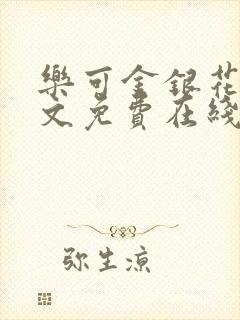 樂可金銀花
文免費在綫
弥生涼